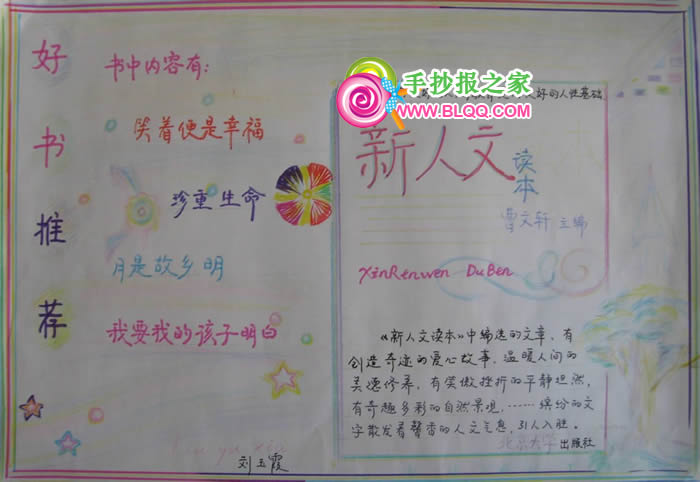 好书推荐
书中内容有：
笑着便是幸福
珍重生命
月是故乡明
我要我的孩子明白
手抄报之家
WWW.BLQQ.COM
好的人性基础
新人文
读本
曹文轩 主编
XinRenwen DuBen
《新人文读本》中编选的文章，有
创造奇迹的爱心故事，温暖人间的
美德修养，有笑傲挫折的平静坦然，
有奇趣多彩的自然景观，……缤纷的文
字散发着馨香的人文气息，引人入胜。
北京大学出版社
刘玉霞